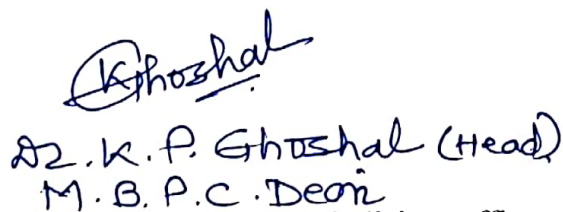 KGhoshal
Dr. K. P. Ghoshal (Head)
M. B. P. C. Deori